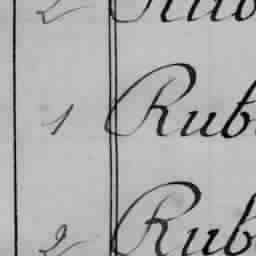 2 Rub
1 Rub
2 Rub